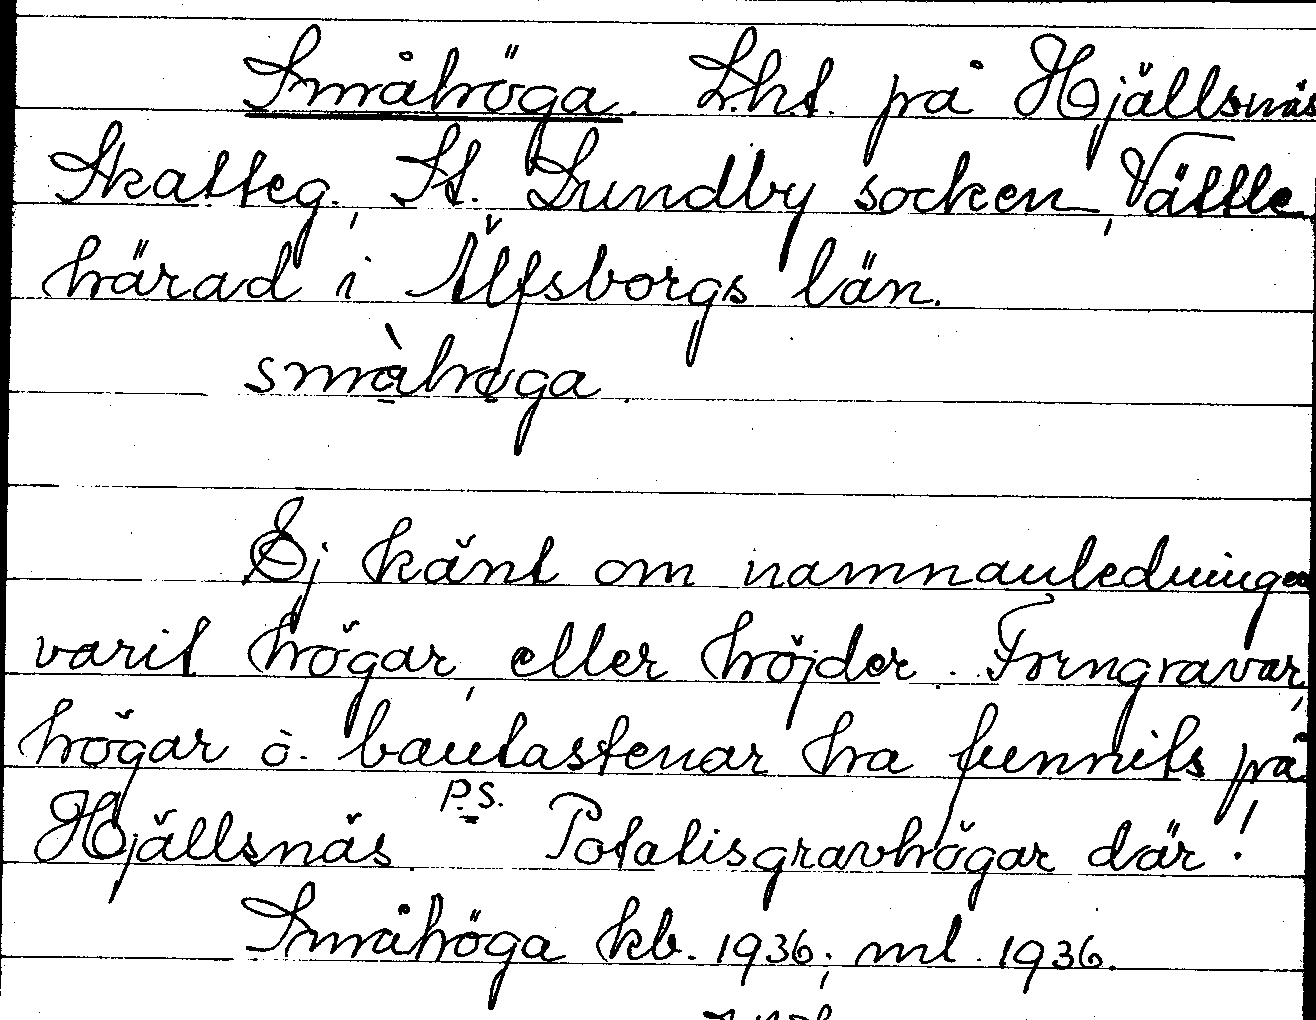 Småhöga. L.h.t. på Hjällsnäs
Skatteg., St. Lundby socken, Vättle
härad i Älfsborgs län.
smàhøga.
Ej känt om namnanledningen
varit högar, eller höjder. Forngravar,
högar o. bautastenar ha funnits på
Hjällsnäs. P.S. Potatisgravhögar där!
Småhöga kb. 1936; ml. 1936.